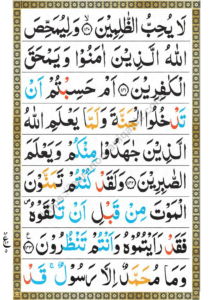 لَا يُحِبُّ الظّٰلِمِيْنَ ۙ﴿۱۴۰﴾ وَلِيُمَحِّصَ
اللّٰهُ الَّذِيْنَ اٰمَنُوْا وَيَمْحَقَ
الْكٰفِرِيْنَ ﴿۱۴۱﴾ اَمْ حَسِبْتُمْ اَنْ
تَدْخُلُوا الْجَنَّةَ وَلَمَّا يَعْلَمِ اللّٰهُ
الَّذِيْنَ جٰهَدُوْا مِنْكُمْ وَيَعْلَمَ
الصّٰبِرِيْنَ ﴿۱۴۲﴾ وَلَقَدْ كُنْتُمْ تَمَنَّوْنَ
الْمَوْتَ مِنْ قَبْلِ اَنْ تَلْقَوْهُ ۪
فَقَدْ رَاَيْتُمُوْهُ وَاَنْتُمْ تَنْظُرُوْنَ ﴿۱۴۳﴾
وَمَا مُحَمَّدٌ اِلَّا رَسُوْلٌ ۚ قَدْ